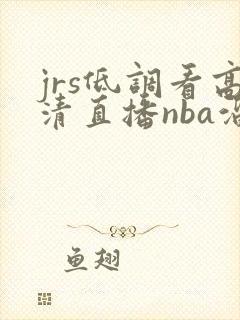 jrs低調看高
清直播nba沿
鱼翅